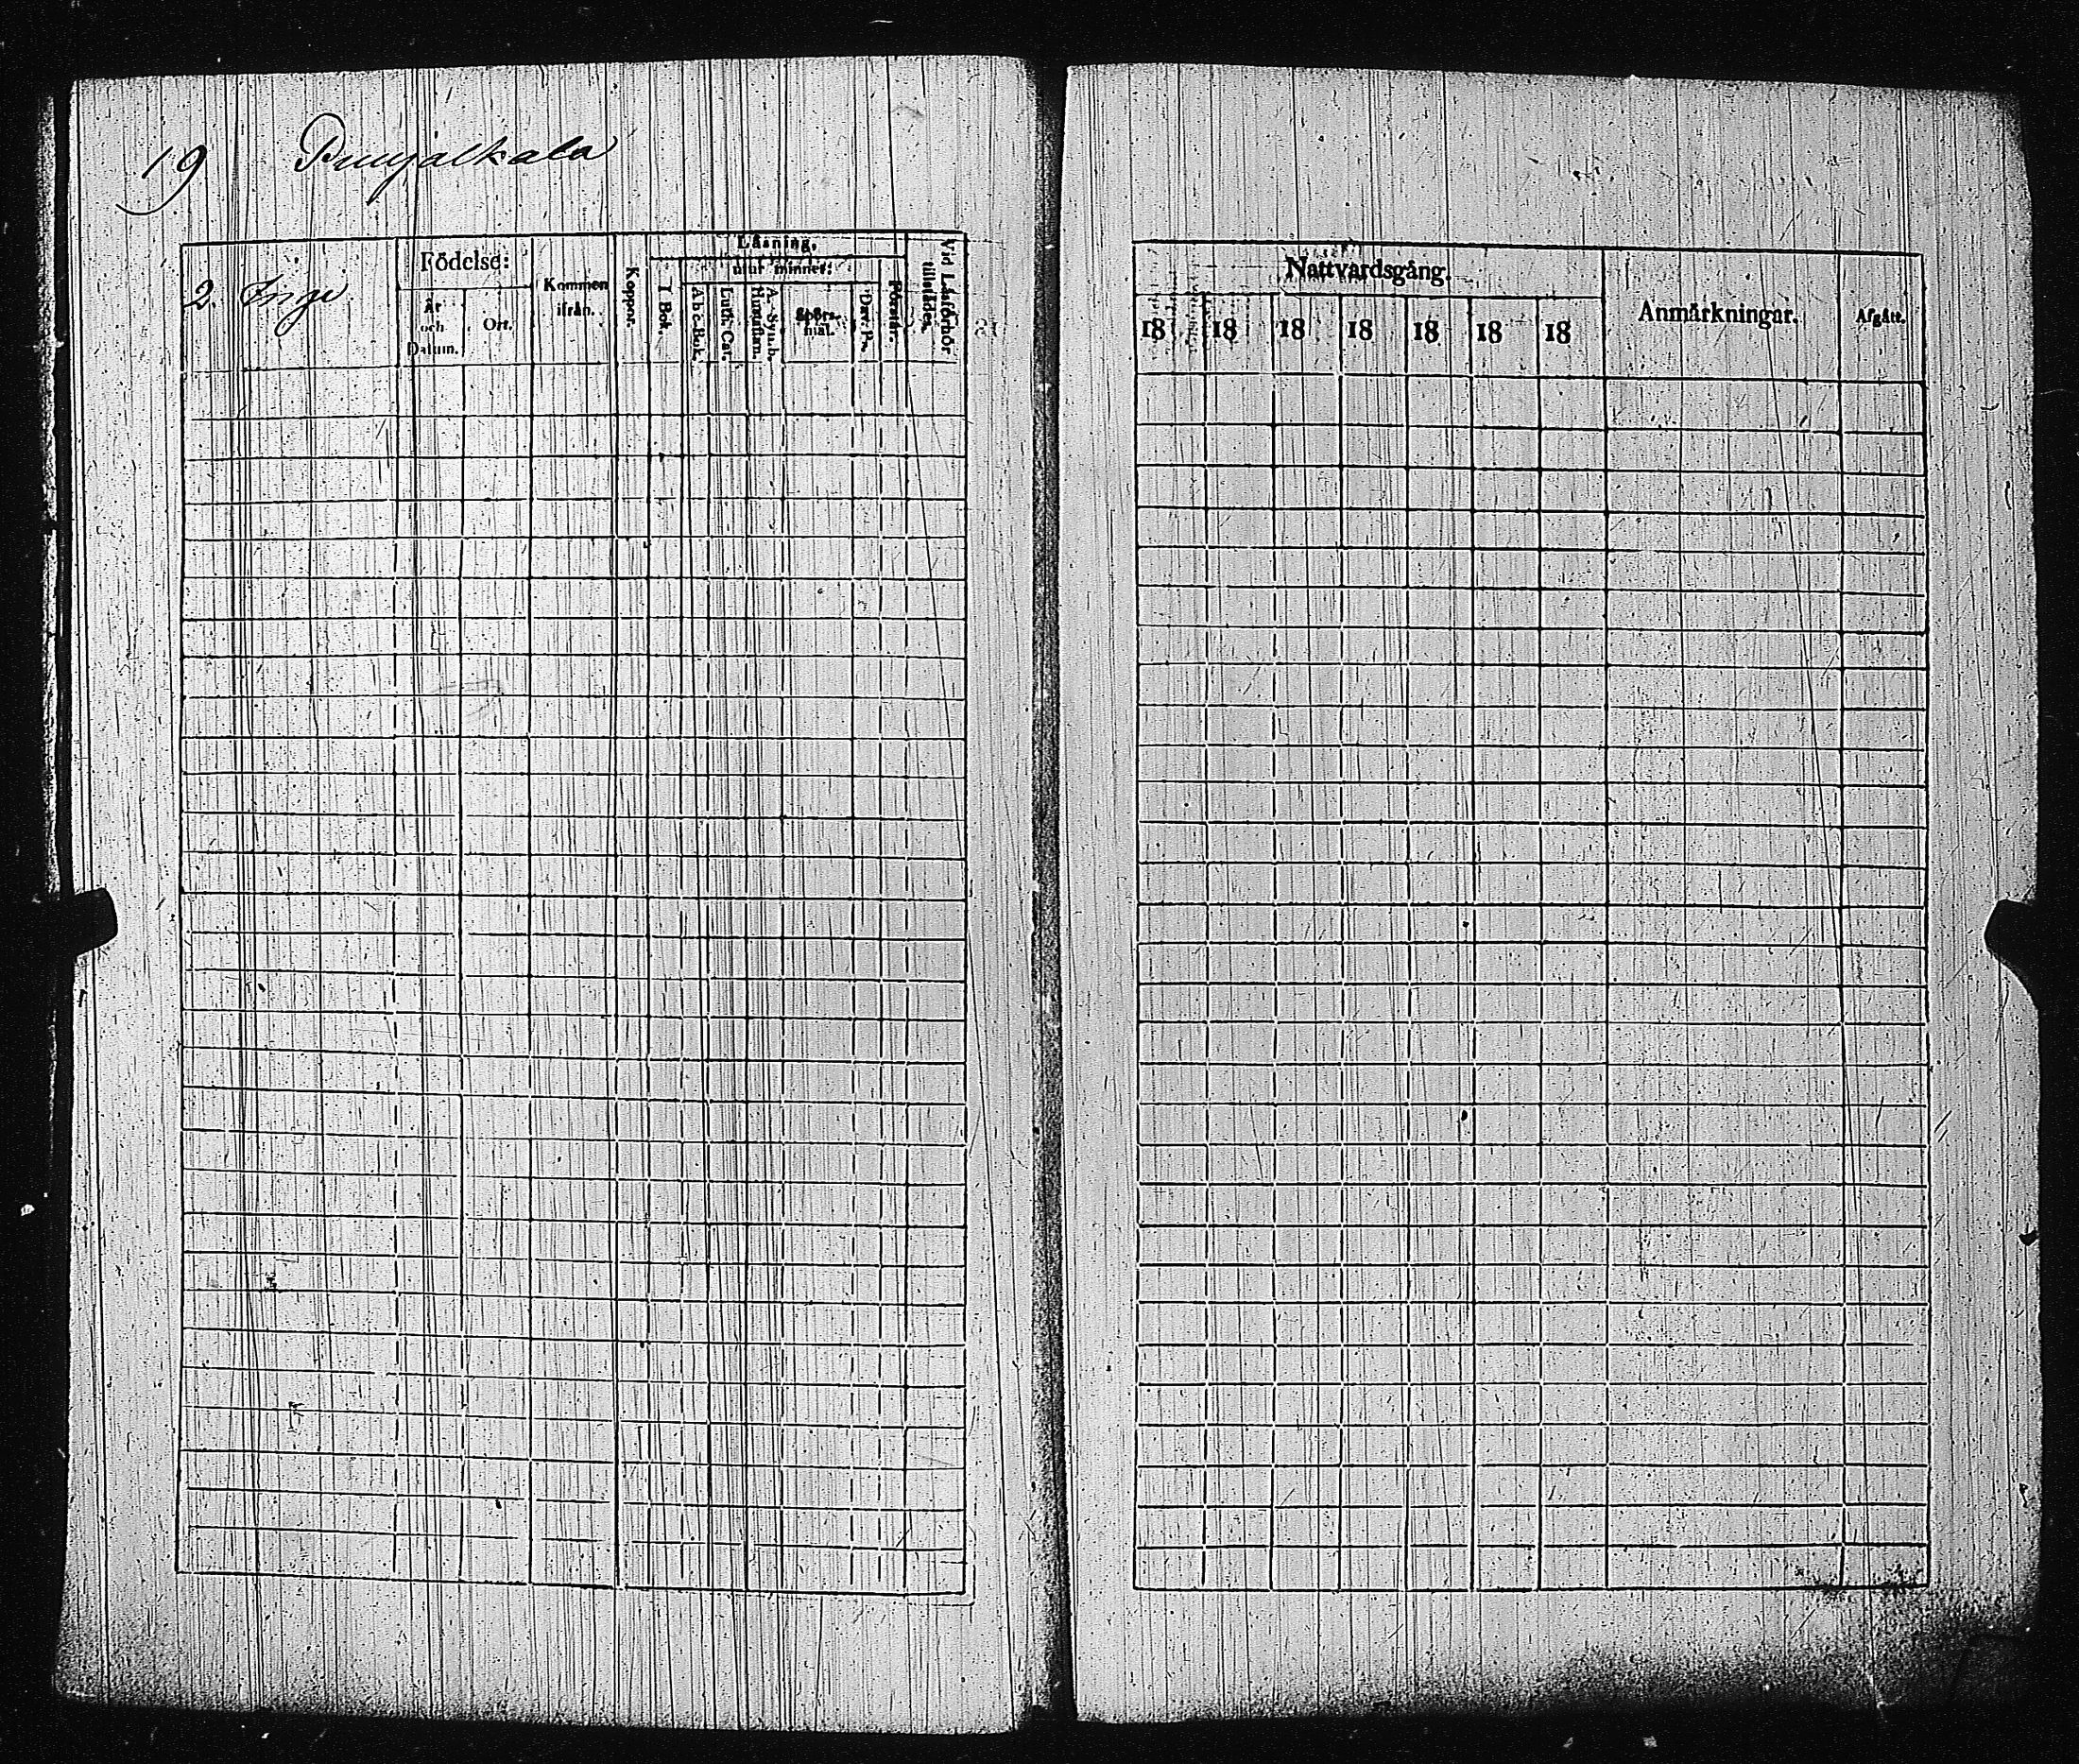 19 Punjalkala
2. Inge
Födelse:
År och Datum.
Ort.
Kommen ifrån.
Koppor.
Läsning.
I Bok.
utur minnet:
A b c-Bok.
Luth. Cat.
A. Symb. Hustaflan.
Spörsmål.
Dav. Ps.
Förstår.
Vid Läsförhör tillstädes.
Nattvardsgång.
18 18 18 18 18 18 18
Anmärkningar.
Afgått.